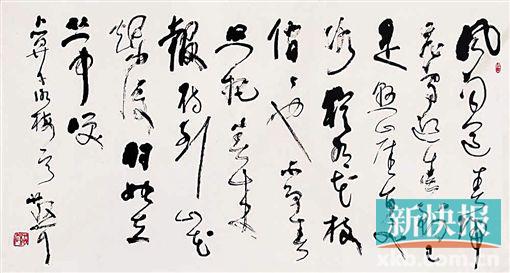 风雨送春归
飞雪迎春到已
是悬崖百丈
冰犹有花枝
俏〻也不争春
只把春来
报待到山花
烂漫时她在
丛中笑
卜算子咏梅
新快报
xkb.com.cn